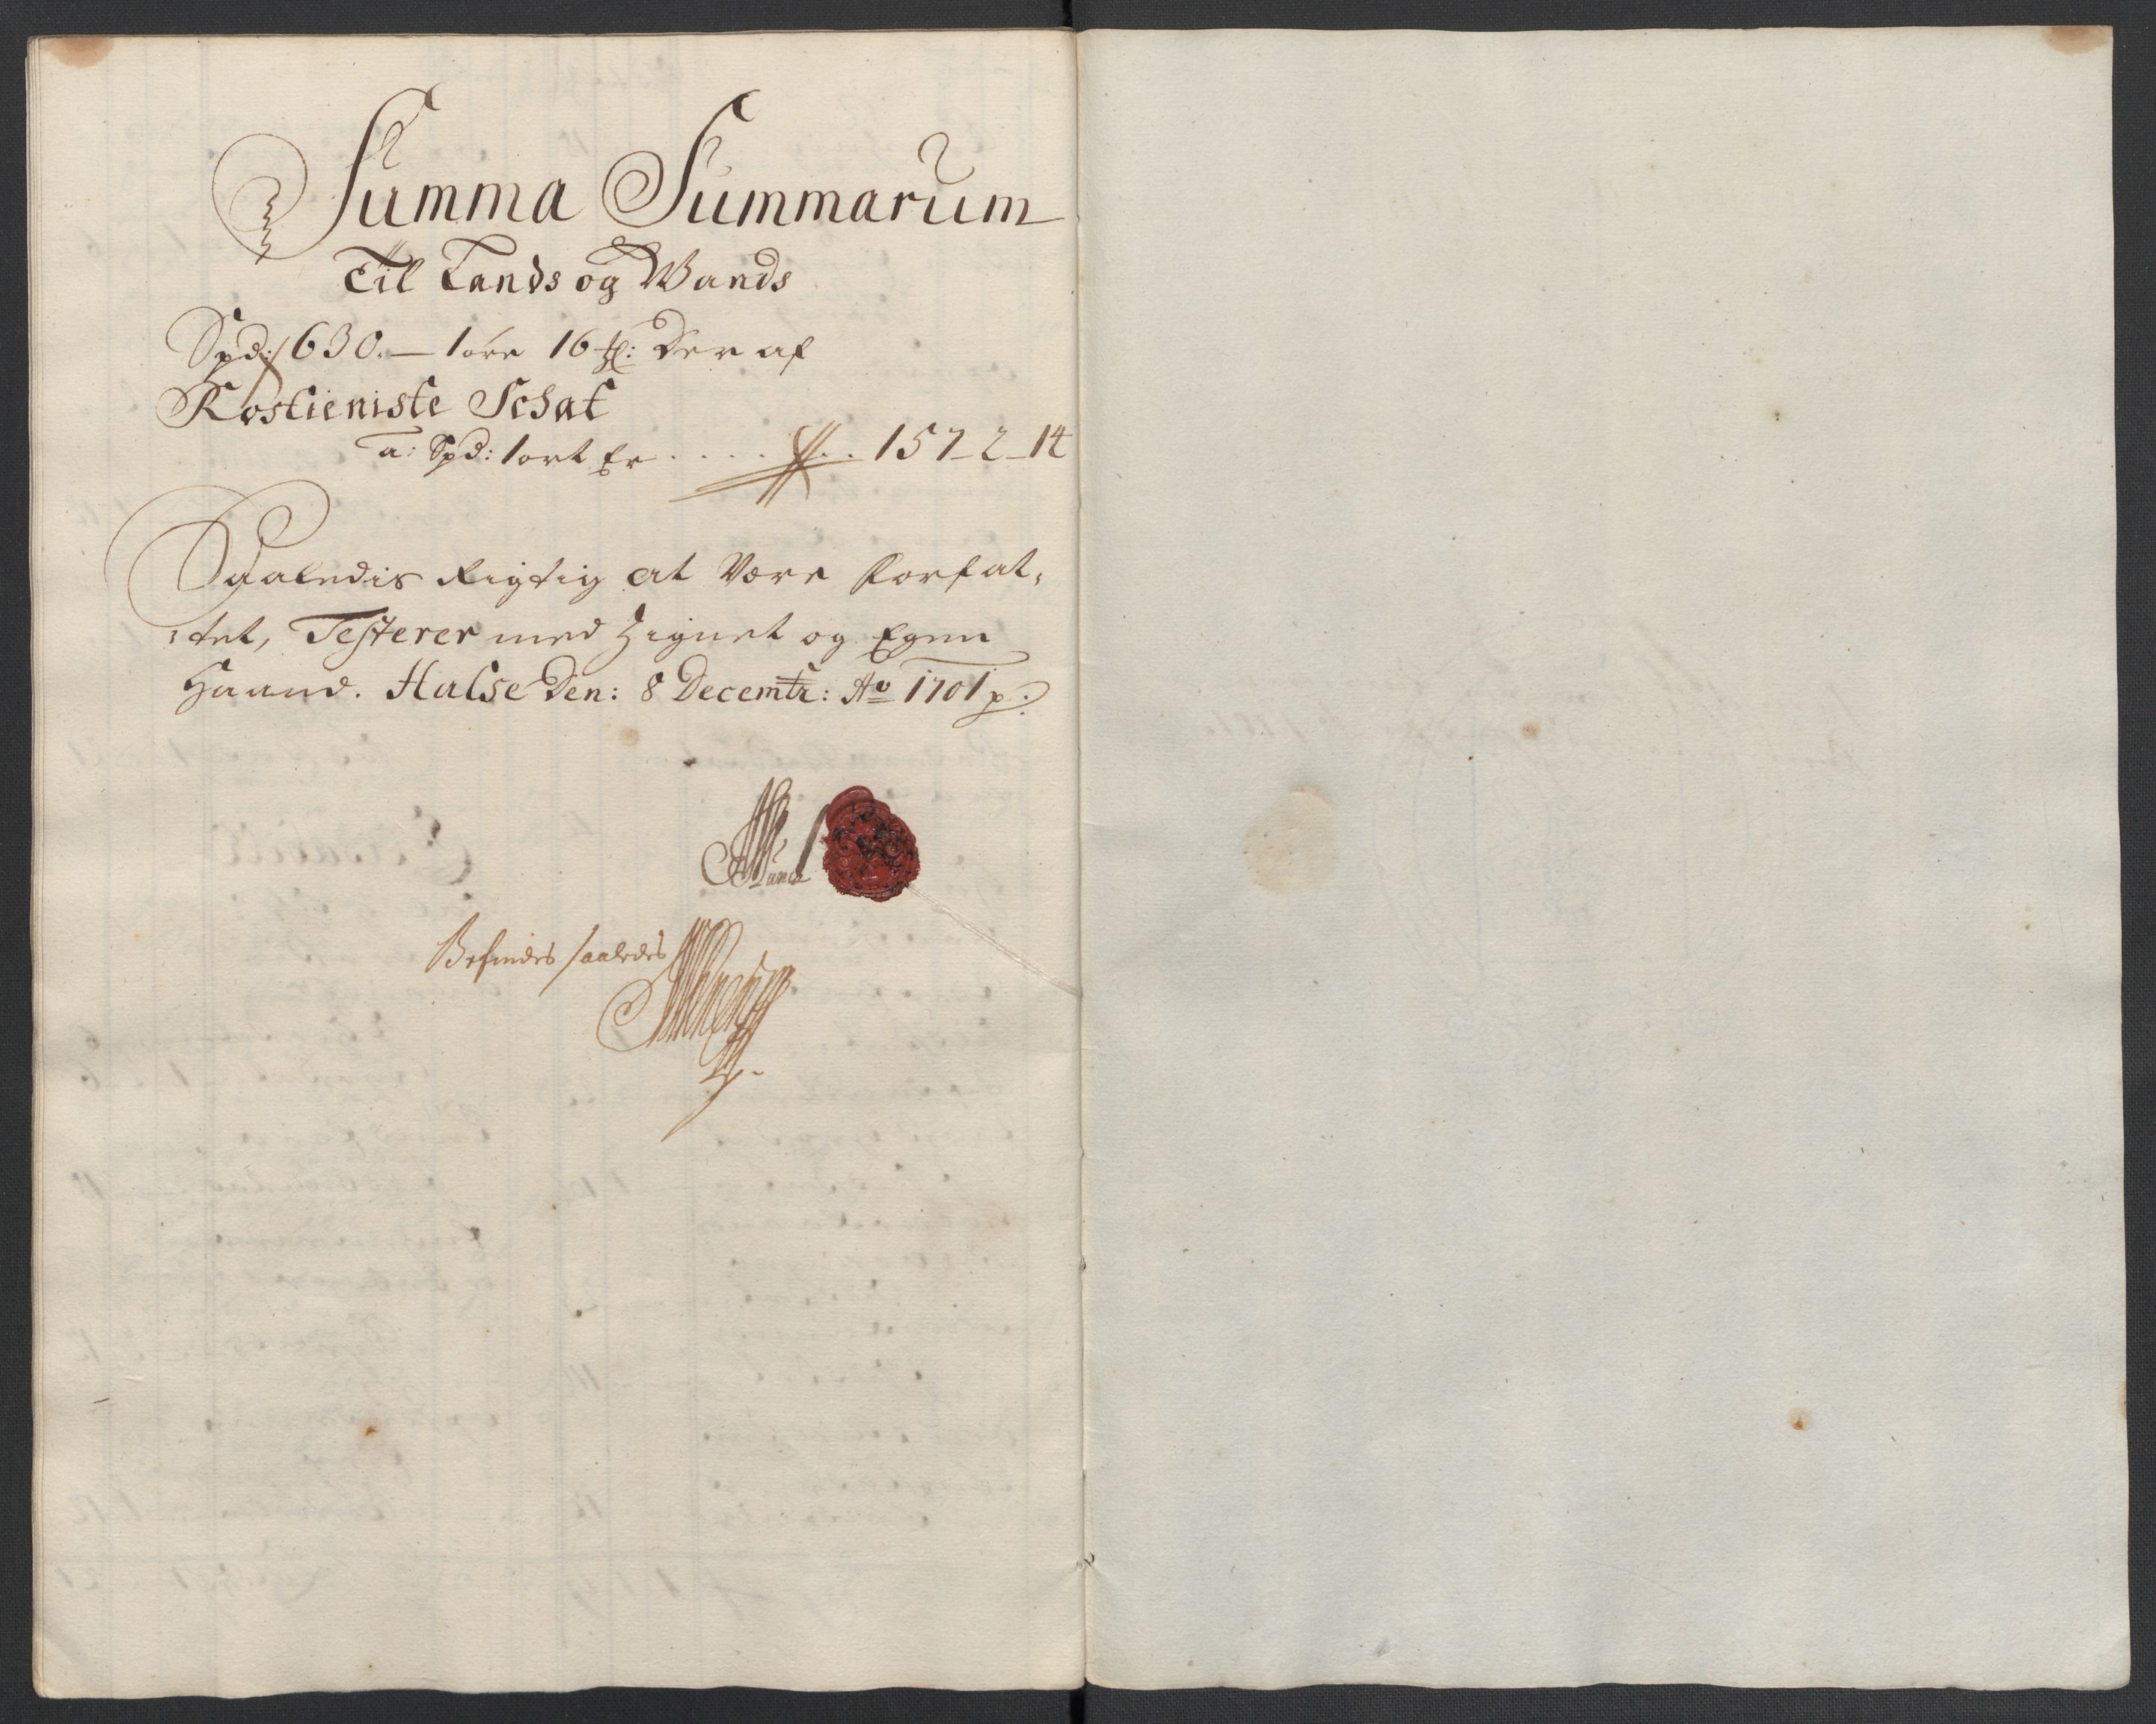 Summa Summarum
Til Lands og Wands
Spd: 630. — 1 øre 16 ℔: Der af
Rostieniste Schat
a: Spd: 1 ort Er . . . . . 157 – 2 – 14
Saaledis Rigtig at Være Forfat,
,tet, Testerer med Zignet og Egen
Haand. Halse Den: 8 Decembr: Ao 1701 p:
Munch
Befindes saaledes